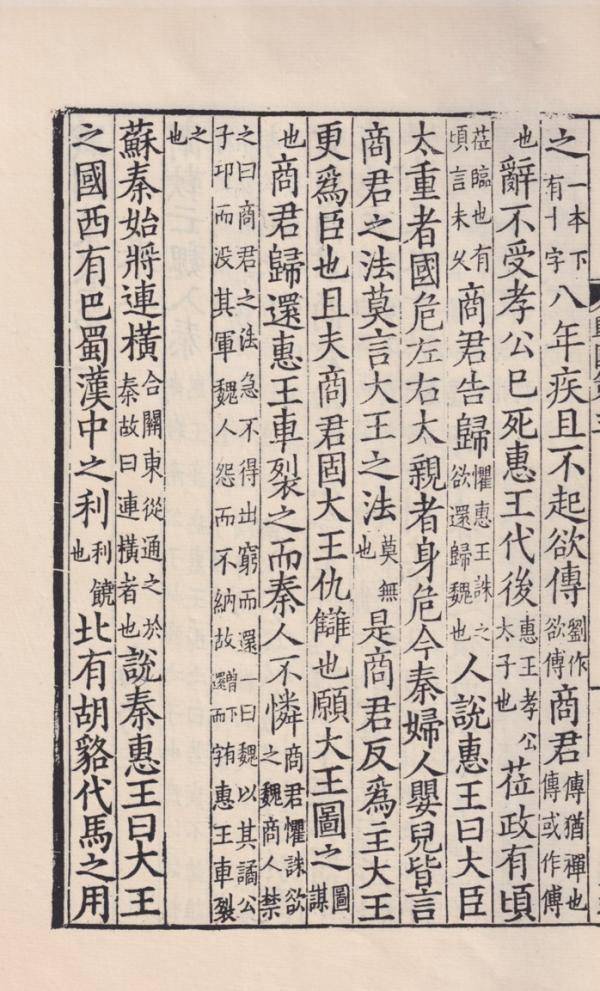 之一本下有十字八年疾且不起欲傳劉作欲傳商君傳猶禪也傳或作傅
也辭不受孝公巳死惠王代後惠王孝公太子也莅政有頃
莅臨也有頃言未乆商君告歸懼惠王誅之欲還歸魏也人說惠王曰大臣
太重者國危左右太親者身危今秦婦人嬰兒皆言
商君之法莫言大王之法莫無也是商君反爲主大王
更爲臣也且夫商君固大王仇讎也願大王圖之圖謀
也商君歸還惠王車裂之而秦人不憐商君懼誅欲之魏商人禁
之曰商君之法急不得出窮而還一曰魏以其譎公子卭而没其軍魏人怨而不納故還曾下有而字惠王車裂
之也
蘇秦始將連橫合關東從通之於秦故曰連橫者也說秦惠王曰大王
之國西有巴蜀漢中之利利饒也北有胡貉代馬之用